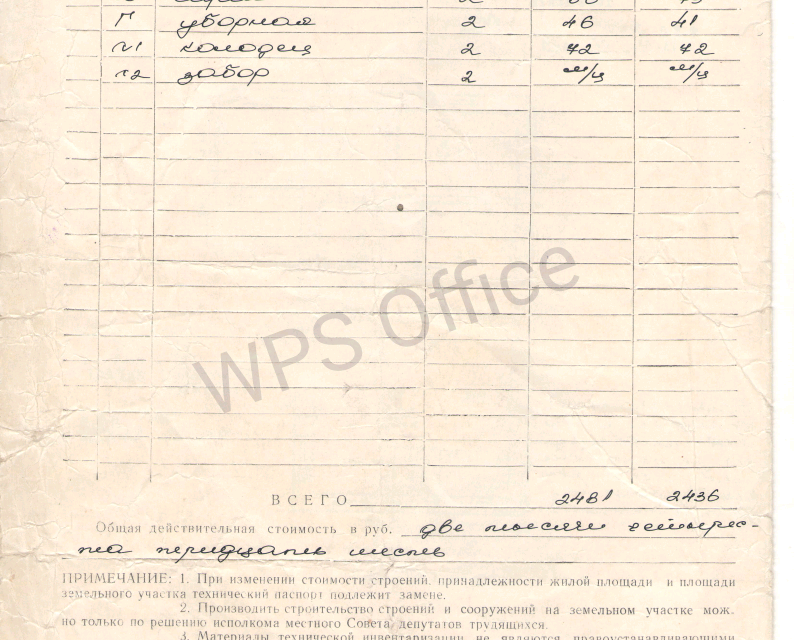 Г уборная 2 46 41
г1 колодец 2 72 72
г2 забор 2 м/ц м/ц
WPS Office
ВСЕГО 2481 2436
Общая действительная стоимость в руб. две тысячи четырес-
та тридцать шесть
ПРИМЕЧАНИЕ: 1. При изменении стоимости строений, принадлежности жилой площади и площади
земельного участка технический паспорт подлежит замене.
2. Производить строительство строений и сооружений на земельном участке мож.
но только по решению исполкома местного Совета депутатов трудящихся.
3. Материалы технической инвентаризации не являются правоустанавливающими